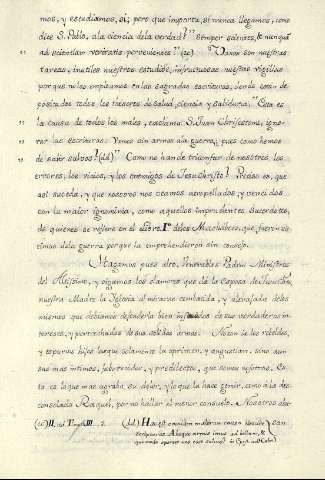 mos, y estudiamos, si; pero que importa, si nunca llegamos, como
dice S. Pablo, ala ciencia dela verdad? "Semper discentes, & nunquã
ad scientiam veritatis pervenientes" (cc) Vanas son nuestras
tareas, inutiles nuestros estudios, infructuosas nuestras vigilias
porque no las empleamos en las sagradas escrituras, donde estan de-
positados todos los tesoros de salud, ciencia y sabiduria. "Esta es
la causa de todos los males, exclama S. Juan Chrisostomo, igno-
rar las escrituras: Vamos sin armas ala guerra, pues como hemos
de salir salvos? (dd)" Como no han de triunfar de nosotros, los
errores, los vicios, y los enemigos de Jesu-Christo? Preciso es, que
asi suceda, y que nosotros nos veamos atropellados, y vencidos
con la maior ignominia, como aquellos imprudentes Sacerdotes,
de quienes se refiere en el Libro I.º delos Macchabeos, que fueron vic-
timas dela guerra porque la emprehendieron sin consejo.
Hagamos pues alto, Venerables Padres Ministros
del Altisimo, y oigamos los clamores que dá la Esposa de Jesu-Chto,
nuestra Madre la Iglesia al mirarse combatida, y ultrajada delos
mismos que debiamos defenderla bien de sus verdaderos in-
tereses, y pertrechados de sus solidas armas. No son ia los rebeldes,
y torpes hijos los que solamente la oprimen, y angustian; sino aun
sus mas intimos, favorecidos, y predilectos, que somos nosotros. Es-
ta es la que mas agraba su dolor, y lo que la hace gemir, como ala des-
consolada Raquel, por no hallar el menor consuelo. A nosotros di-
(cc) II. ad Timoth. III. 7. (dd) Haec est omnium malorum causa nescire
scripturas. Absque armis imus ad bellum, &
quomodo oportet nos esse salvos? in Epist. ad Colos.